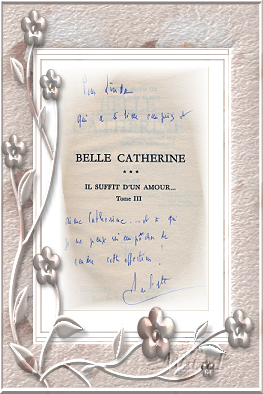 Pour Linda
qui a si bien compris et
BELLE CATHERINE
★★★
IL SUFFIT D'UN AMOUR...
Tome III
aime Catherine... et à qui
je ne peux m'empêcher de
rendre cette affection !